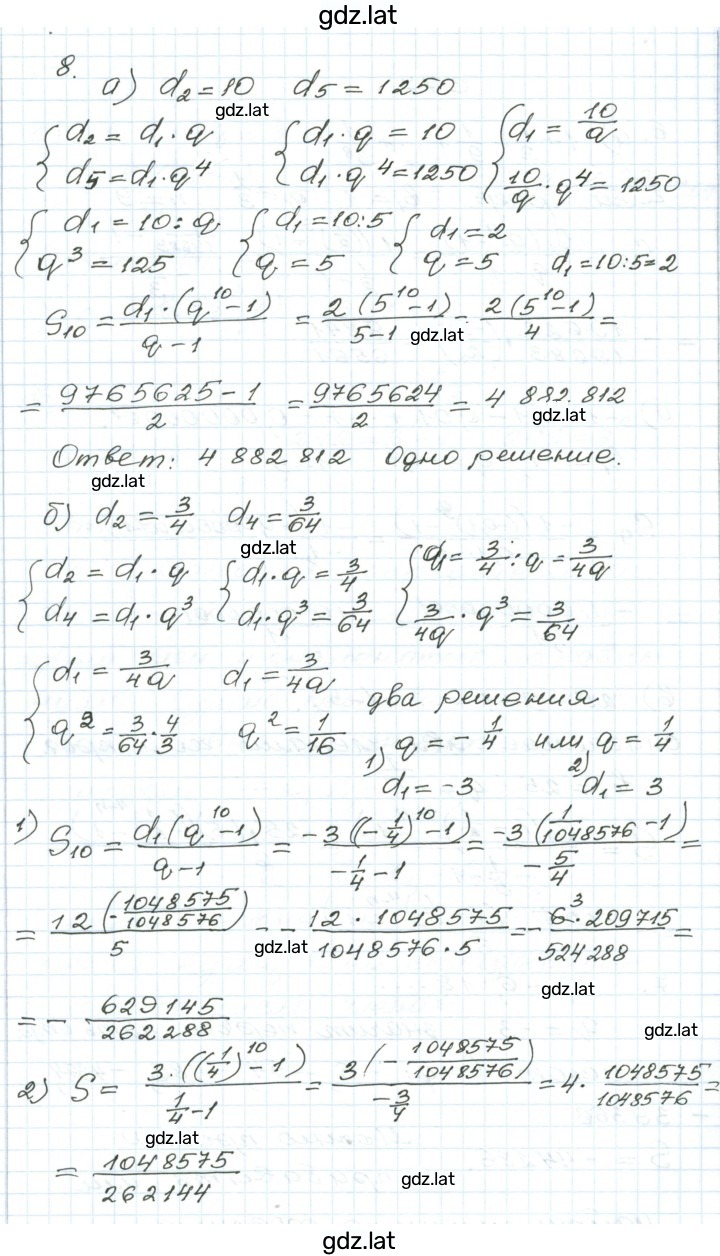 gdz.lat
8. а) d₂ = 10 d₅ = 1250
gdz.lat
{ d₂ = d₁ · q { d₁ · q = 10 { d₁ = 10/q
{ d₅ = d₁ · q⁴ { d₁ · q⁴ = 1250 { 10/q · q⁴ = 1250
{ d₁ = 10 : q { d₁ = 10:5 { d₁ = 2
{ q³ = 125 { q = 5 { q = 5 d₁ = 10:5 = 2
S₁₀ = d₁ · (q¹⁰ - 1) / q - 1 = 2 (5¹⁰ - 1) / 5 - 1 = 2 (5¹⁰ - 1) / 4 =
gdz.lat
= 9765625 - 1 / 2 = 9765624 / 2 = 4 882 812
gdz.lat
Ответ: 4 882 812 Одно решение.
gdz.lat
б) d₂ = 3/4 d₄ = 3/64
gdz.lat
{ d₂ = d₁ · q { d₁ · q = 3/4 { d₁ = 3/4 : q = 3/4q
{ d₄ = d₁ · q³ { d₁ · q³ = 3/64 { 3/4q · q³ = 3/64
{ d₁ = 3/4q d₁ = 3/4q два решения
{ q² = 3/64 · 4/3 q² = 1/16 1) q = - 1/4 или 2) q = 1/4
d₁ = -3 d₁ = 3
1) S₁₀ = d₁ (q¹⁰ - 1) / q - 1 = -3 ((-1/4)¹⁰ - 1) / -1/4 - 1 = -3 (1/1048576 - 1) / -5/4 =
= 12 (-1048575/1048576) / 5 = - 12 · 1048575 / 1048576 · 5 = - 6³ · 209715 / 524288 =
gdz.lat
gdz.lat
= - 629145 / 262288
gdz.lat
2) S = 3 · ((1/4)¹⁰ - 1) / 1/4 - 1 = 3 (- 1048575/1048576) / -3/4 = 4 · 1048575/1048576 =
gdz.lat
= 1048575 / 262144
gdz.lat
gdz.lat